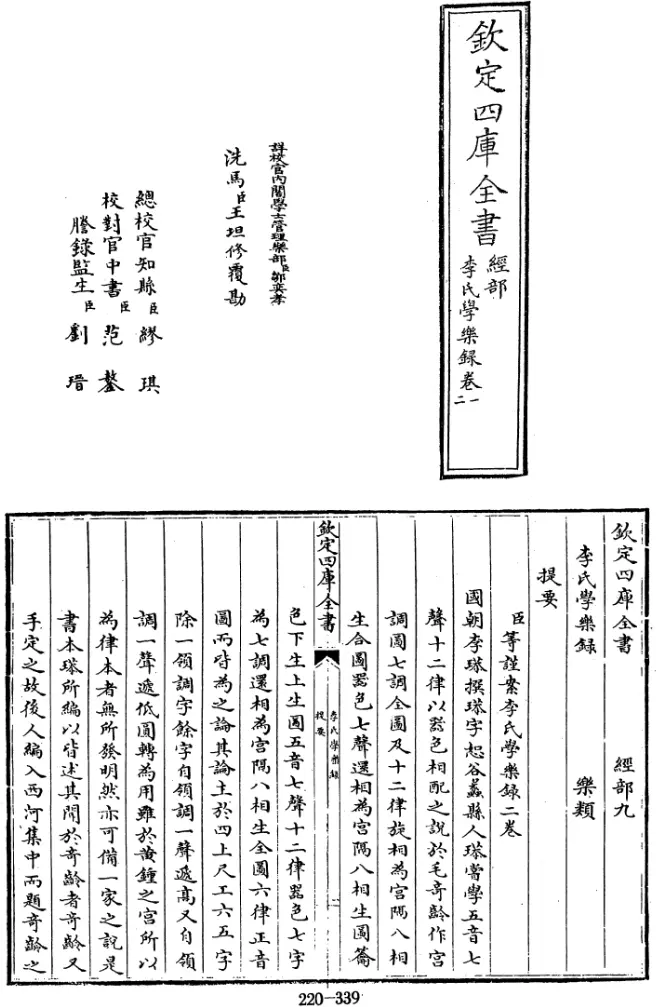 欽定四庫全書
經部
李氏學樂録卷一
二
詳校官內閣學士管理樂部臣鄒奕孝
洗馬臣王坦修覆勘
總校官知縣臣繆琪
校對官中書臣范鏊
謄錄監生臣劉瑨
欽定四庫全書 經部九
李氏學樂録 樂類
提要
臣等謹案李氏學樂録二卷
國朝李塨撰塨字恕谷蠡縣人塨嘗學五音七
聲十二律以器色相配之說於毛奇齡作宮
調圖七調全圖及十二律旋相為宮隔八相
生合圖器色七聲還相為宮隔八相生圖簫
欽定四庫全書
李氏學樂録
提要
一
色下生上生圖五音七聲十二律器色七字
為七調還相為宮隔八相生全圖六律正音
圖而皆為之論其論主於四上尺工六五字
除一領調字餘字自領調一聲遞高又自領
調一聲遞低圓轉為用雖於黄鍾之宮所以
為律本者無所發明然亦可備一家之說是
書本塨所編以皆述其聞於奇齡者奇齡又
手定之故後人編入西河集中而題奇齡之
220-339